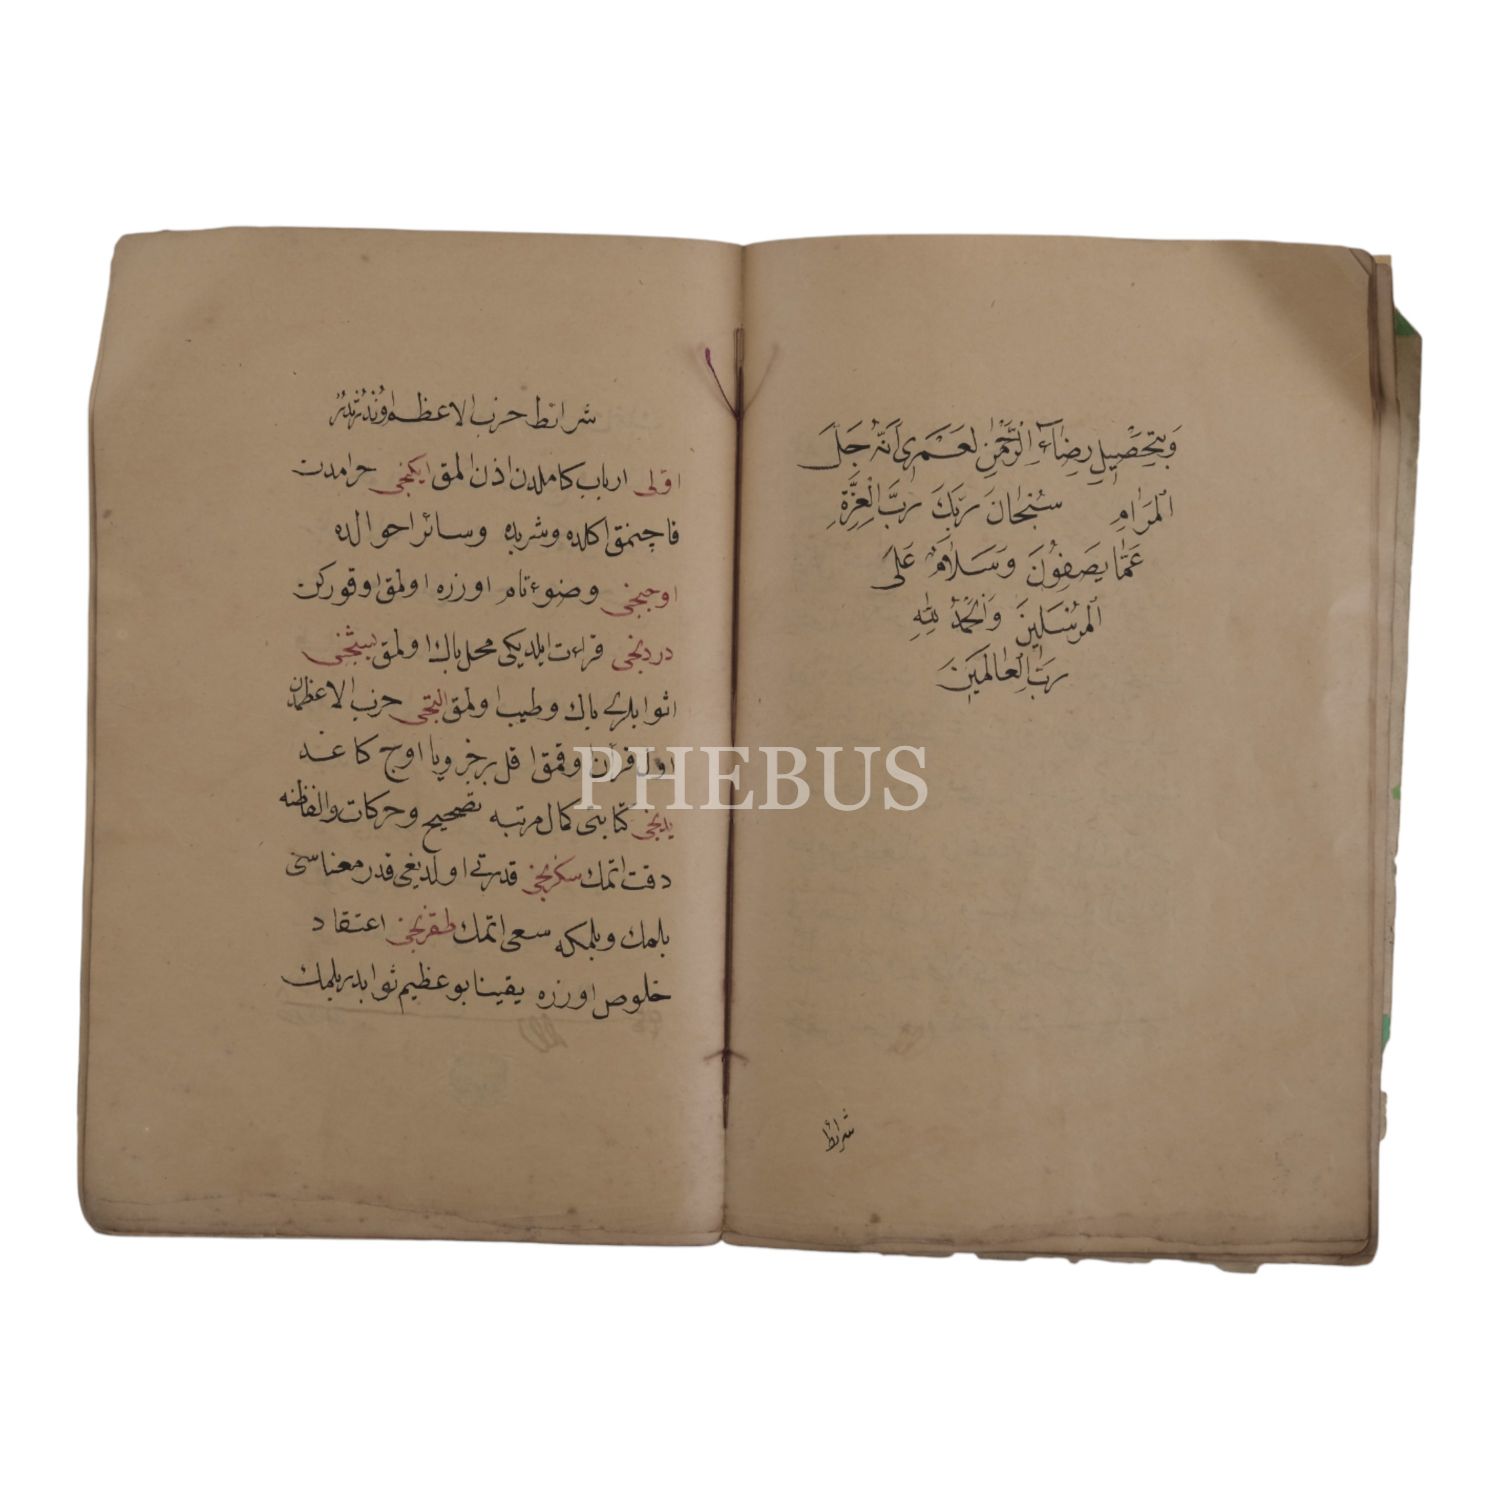 وَبِتَحْصِيلِ رِضَاءِ الرَّحْمٰنِ لَعَمْرِى اَنَّهُ جَلَّ
الْمَرَامِ سُبْحَانَ رَبِّكَ رَبِّ الْعِزَّةِ
عَمَّا يَصِفُونَ وَسَلَامٌ عَلَى
الْمُرْسَلِينَ وَالْحَمْدُ لِلّٰهِ
رَبِّ الْعَالَمِينَ
شرائط
شرائط حزب الاعظم اوندرتدر
اولى ارباب كاملدن اذن المق ايكنجى حرامدن
قاچنمق اكلده وشربده وسائر احوالده
اوچنجى وضوء تام اوزره اولمق اوقوركن
دردنجى قراءت ايلديكى محل باك اولمق بشنجى
اثوابلرى باك وطيب اولمق التنجى حزب الاعظمدن
اول قرآن اوقمق اقل برجز ويا اوچ كاغد
يدنجى كتابتى كمال مرتبه تصحيح وحركات والفاظنه
دقت اتمك سكزنجى قدرتى اولديغى قدر معناسنى
بلمك وبلمكه سعى اتمك طقزنجى اعتقاد
خلوص اوزره يقينا بو عظيم ثوابدر بلمك
PHEBUS